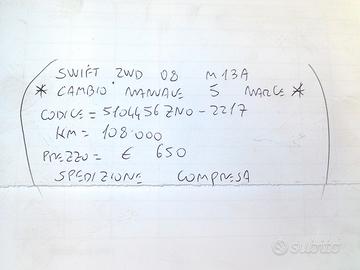 SWIFT 2WD 08 M13A
* CAMBIO MANUALE 5 MARCE *
CODICE = 5104456ZNO-2217
KM = 108.000
PREZZO = € 650
SPEDIZIONE COMPRESA
subito